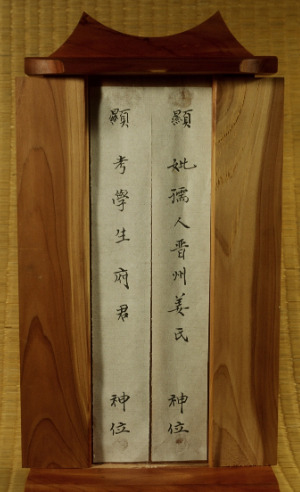 顯妣孺人晋州姜氏 神位
顯考學生府君 神位